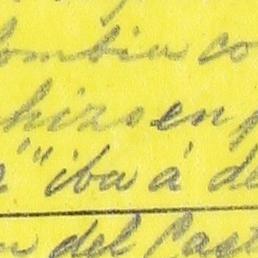 lombia co
hizo en p
" iba á de
del Cast